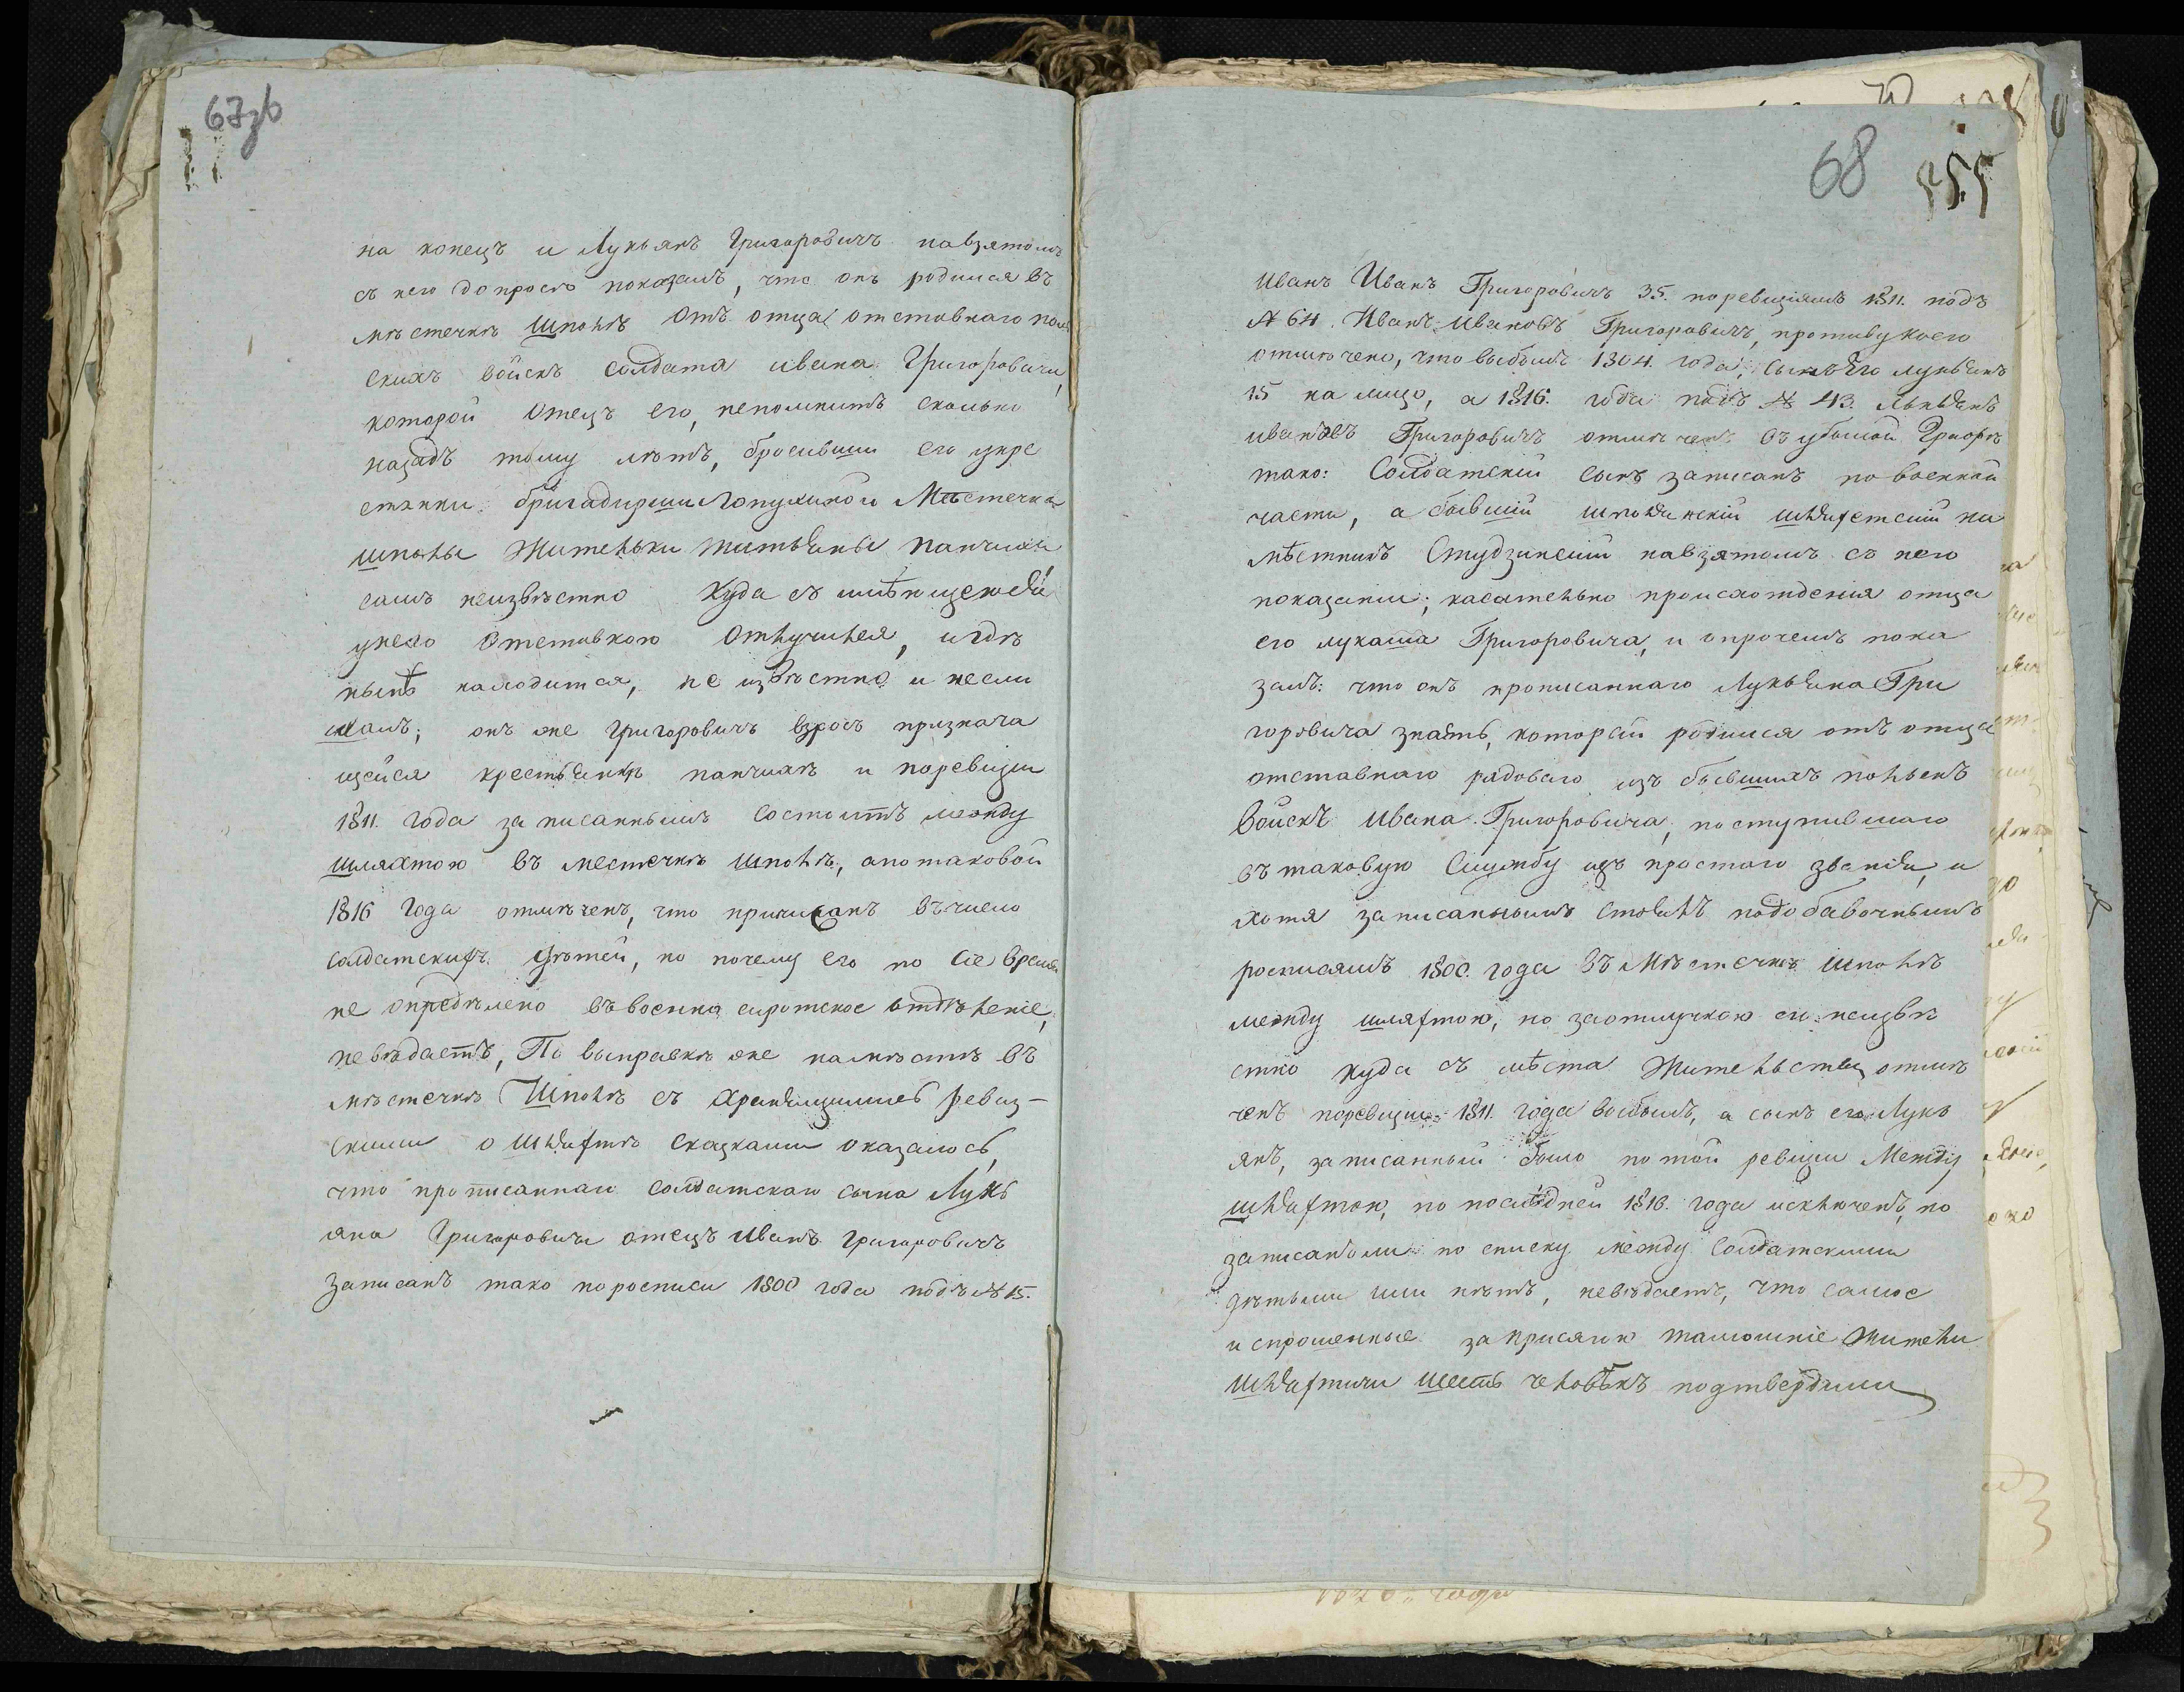 67зв
на конецъ и Лукьянъ Григоровичъ навзятомъ
съ него допросе показалъ, что онъ родился въ
мѣстечкѣ Шполѣ Отъ отца отставнаго поль
скихъ войскъ солдата ивана Григоровича,
которой Отецъ его, непомнитъ сколько
назадъ тому лѣтъ, бросивши его укре
стянки бригадирши Лопухиной Мѣстечка
шполы Жительки татьяны панчихи
самъ неизвѣстно куда съ имѣющеюся
унего Отставкою Отлучился, игдѣ
нынѣ находится, не извѣстно и несли
шалъ; онъ же Григоровичъ взросъ призноча
щейся крестьянкѣ панчихѣ и поревизии
1811. года записаннымъ состоитъ между
шляхтою въ местечкѣ шполѣ, апотаковой
1816 Года отмѣченъ, что приписанъ въчисло
солдатскихъ дѣтей, но почему его по сіе время
не опредѣлено въвоенно сиротское отдѣленіе,
невѣдаетъ, По выправкѣ же намѣстѣ въ
мѣстечкѣ Шполѣ съ хранящимися ревиз-
скими о шляхтѣ сказками оказалось,
что прописаннаго солдатскаго сына Лукь
яна Григоровича отецъ иванъ Григоровичъ
записанъ тако поросписи 1800 года подъ № 15.
68 355
Иванъ Иванъ Григоровичъ 35. поревизіямъ 1811. подъ
№ 64. Иванъ Ивановъ Григоровичъ, противукоего
отмѣчено, что выбылъ 1804. года, Сынъ Его лукьянъ
15 на лицо, а 1816. года подъ № 43. Лукьянъ
ивановъ Григоровичъ отмѣченъ въ убылой Графѣ
тако: Солдатскій сынъ записанъ по военной
части, а бывшій шполянскій шляхетскій на
мѣстникъ Студзинскій навзятомъ съ него
показаніи; касательно происхождения отца
его лукаша Григоровича, и опрочемъ пока
залъ: что онъ прописаннаго Лукьяна Гри
горовича знаетъ, которой родился отъ отца
отставнаго рядоваго изъ бывшихъ польскъ
Войскъ Ивана Григоровича, поступившаго
въ таковую Службу изъ простаго званія, и
хотя записаннымъ стоялъ подобавочнымъ
росписямъ 1800. года въ Мѣстечкѣ шполѣ
между шляхтою, но заотлучкою его неизвѣ
стно куда съ мѣста Жительства, отмѣ
ченъ поревизии 1811. года выбылъ, а сынъ его Лукь
янъ, записанный было потой ревизии Между
шляхтою, по послѣдней 1816. года исключенъ, но
записанъ ли по списку между Солдатскими
дѣтьми или нѣтъ, невѣдаетъ, что самое
и спрошенные за присягою тамошніе Жители
шляхтичи шесть человѣкъ подтвердили